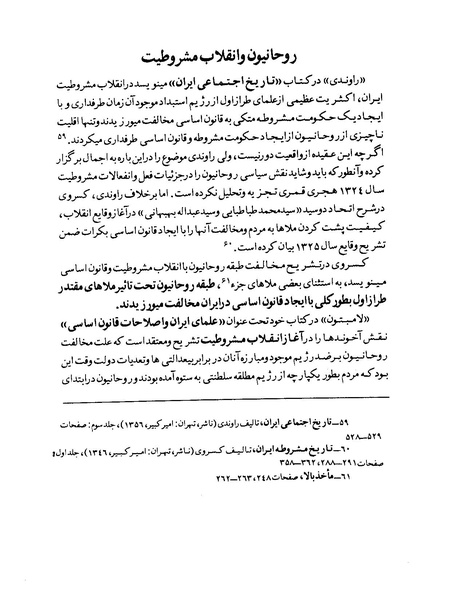 روحانیون و انقلاب مشروطیت
«راوندی» در کتاب «تاریخ اجتماعی ایران» مینویسد در انقلاب مشروطیت
ایران، اکثریت عظیمی از علمای طراز اول از رژیم استبداد موجود آن زمان طرفداری و با
ایجاد یک حکومت مشروطه متکی به قانون اساسی مخالفت میورزیدند و تنها اقلیت
ناچیزی از روحانیون از ایجاد حکومت مشروطه و قانون اساسی طرفداری میکردند. ۵۹
اگرچه این عقیده از واقعیت دور نیست، ولی راوندی موضوع را در این باره به اجمال برگزار
کرده و آنطور که باید و شاید نقش سیاسی روحانیون را در جزئیات فعل و انفعالات مشروطیت
سال ۱۳۲۴ هجری قمری تجزیه و تحلیل نکرده است. اما برخلاف راوندی، کسروی
در شرح اتحاد دو سید «سید محمد طباطبایی و سید عبداله بهبهانی» در آغاز وقایع انقلاب،
کیفیت پشت کردن ملاها به مردم و مخالفت آنها را با ایجاد قانون اساسی بکرات ضمن
تشریح وقایع سال ۱۳۲۵ بیان کرده است. ۶۰
کسروی در تشریح مخالفت طبقه روحانیون با انقلاب مشروطیت و قانون اساسی
مینویسد، به استثنای بعضی ملاهای جزء ۶۱، طبقه روحانیون تحت تاثیر ملاهای مقتدر
طراز اول بطور کلی با ایجاد قانون اساسی در ایران مخالفت میورزیدند.
«لامبتون» در کتاب خود تحت عنوان «علمای ایران و اصلاحات قانون اساسی»
نقش آخوندها را در آغاز انقلاب مشروطیت تشریح و معتقد است که علت مخالفت
روحانیون بر ضد رژیم موجود و مبارزه آنان در برابر بیعدالتی ها و تعدیات دولت وقت این
بود که مردم بطور یکپارچه از رژیم مطلقه سلطنتی به ستوه آمده بودند و روحانیون در ابتدای
۵۹ـ تاریخ اجتماعی ایران، تالیف راوندی (ناشر، تهران: امیر کبیر، ۱۳۵۶)، جلد سوم: صفحات
۵۲۹ـ۵۲۸
۶۰ـ تاریخ مشروطه ایران، تالیف کسروی (ناشر، تهران: امیر کبیر، ۱۳۴۶)، جلد اول:
صفحات ۲۹۱ـ۲۸۸، ۳۶۲ـ۳۵۸
۶۱ـ مأخذ بالا، صفحات ۲۴۸، ۲۶۳ـ۲۶۲